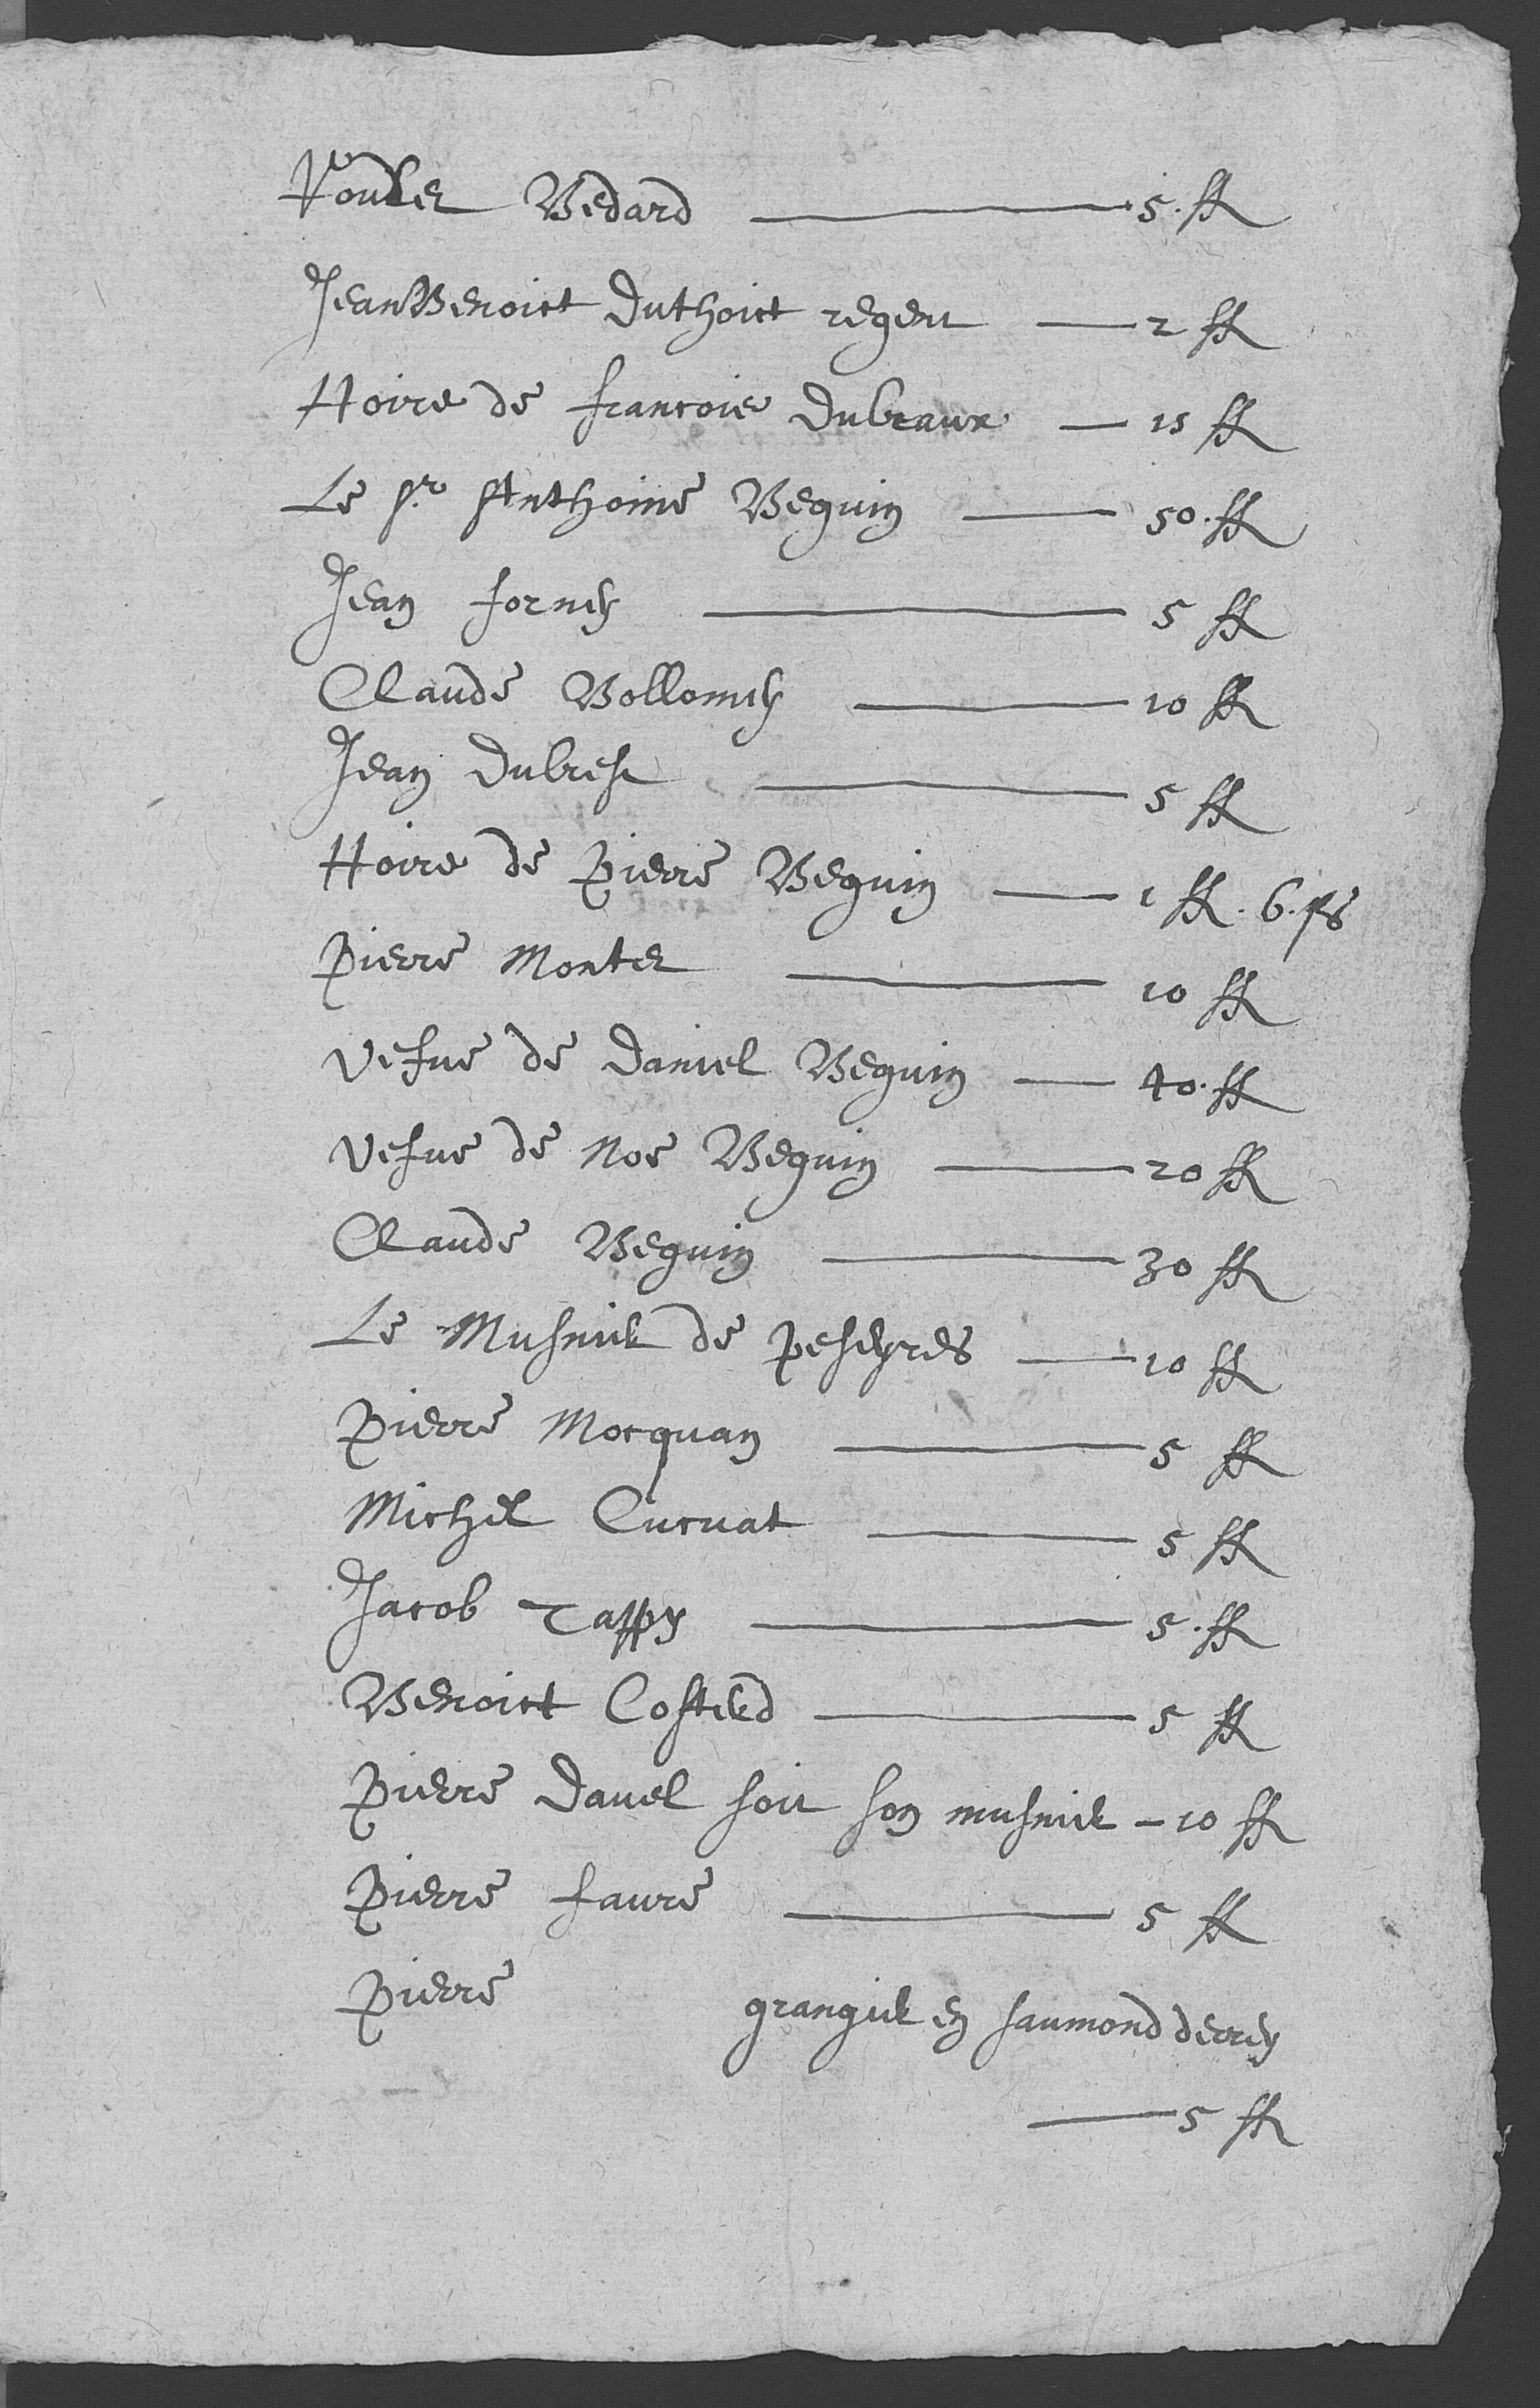 Roulet Bedard — 5. ff
Jean Benoict Duthoict regent — 2 ff
Hoirs de francois Dubraux — 15 ff
Le Sr. Anthoine Beguin — 50. ff
Jean forney — 5 ff
Claude Vollomey — 10 ff
Jean Dubrest — 5 ff
Hoirs de Pierre Beguin — 1 ff. 6. ss
Pierre Montet — 10 ff
Vefue de Daniel Beguin — 40. ff
Vefue de Noe Beguin — 20 ff
Claude Beguin — 30 ff
Le Musnier de peseyres — 10 ff
Pierre Mocquan — 5 ff
Michel Cucuat — 5 ff
Jacob Tappy — 5. ff
Benoict Costerd — 5 ff
Pierre Dauel soit son musnier — 10 ff
Pierre faure — 5 ff
Pierre grangier en saumond derrey
— 5 ff